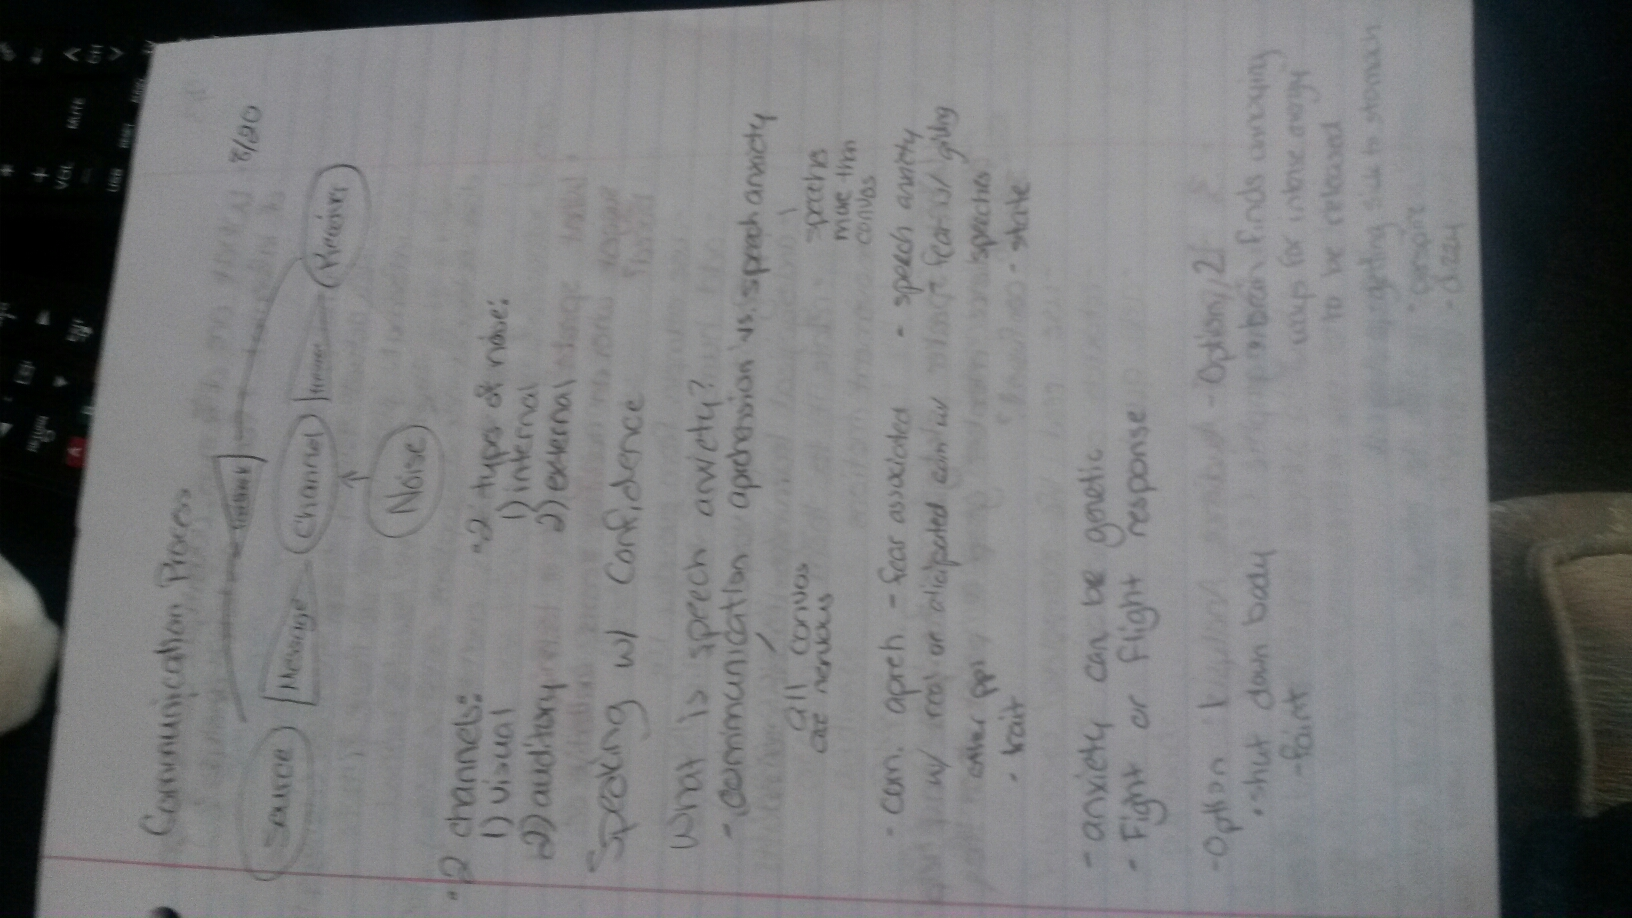 Communication Process
8/20
Source
Message
Channel
Receiver
Noise
"2 channels:
1) visual
2) auditory
"2 types of noise:
1) internal
2) external
Speaking w/ Confidence
What is speech anxiety?
- communication aprehension vs. speech anxiety
all convos
are nervous
speechs
more than
convos
- com. apreh - fear associated
w/ real or aticipated com w/
other ppl
• trait
- speech anxiety
fear of giving
speeches
• state
- anxiety can be genetic
- Fight or flight response
- Option 1
• shut down body
- faint
- Option 2
• brain finds annoying
ways for intense energy
to be released
getting sick to stomach
• perspire
- dizzy
VOL
MUTE